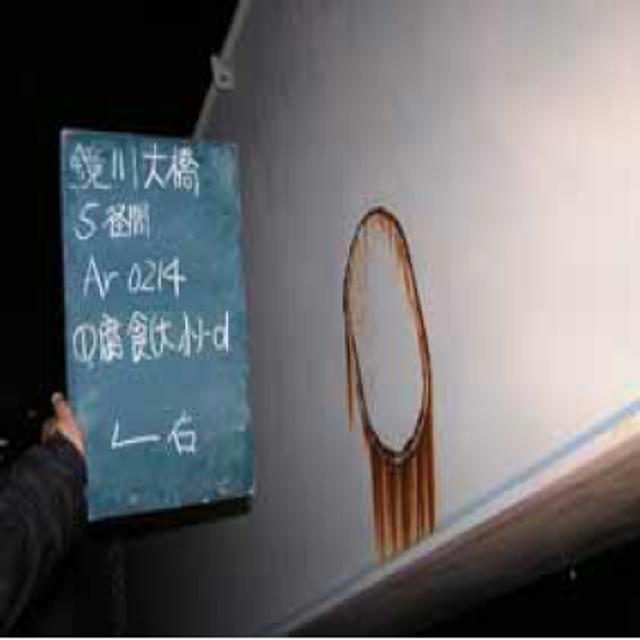 鏡川大橋
5径間
Ar 0214
①腐食(大小)-d
右